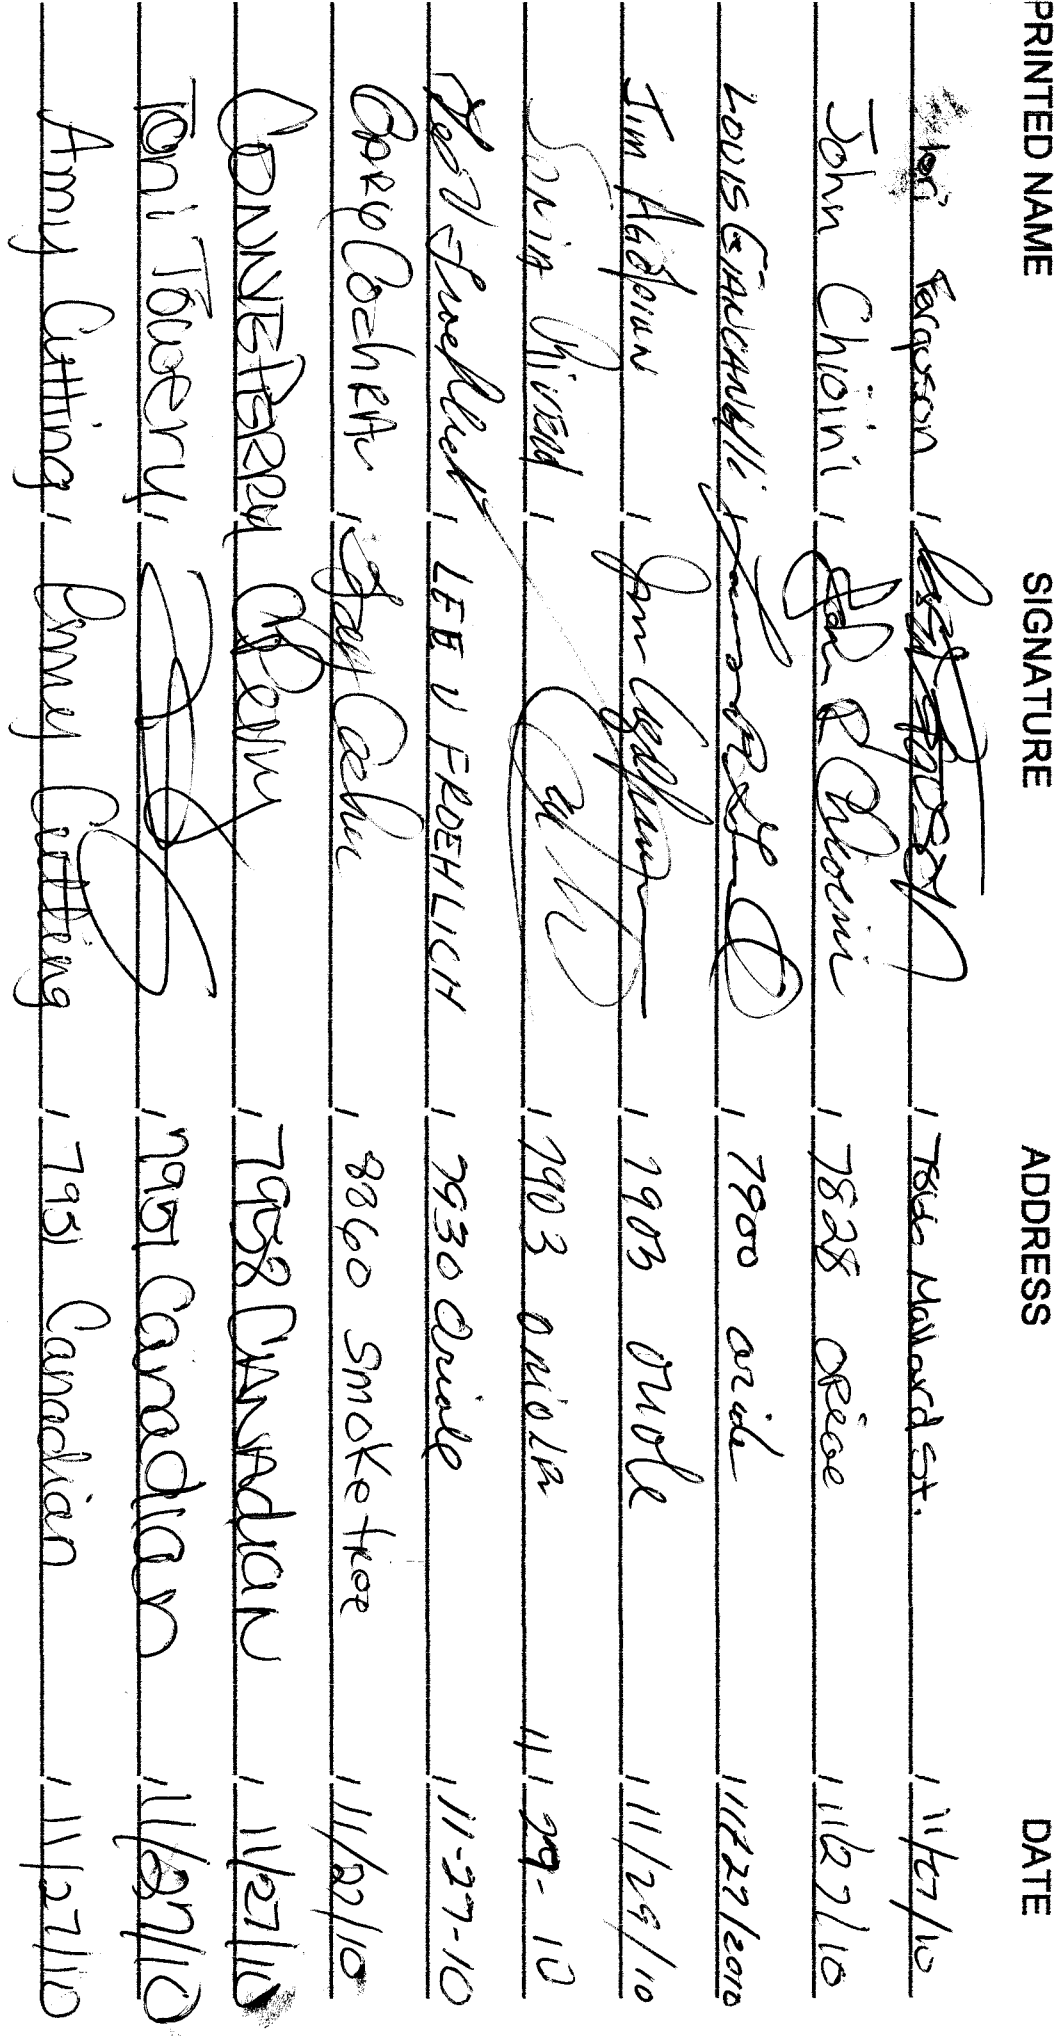 PRINTED NAME SIGNATURE ADDRESS DATE
Lori Ferguson Mallard St. 11/27/10
John Chioini John Chioini 7828 Oriole 11/27/10
Louis Giancanelli 7900 oriole 11/27/2010
Jim Agopian 7903 Oriole 11/29/10
Sonia Rivera 7903 oriole 11-29-10
Lee V Froehlich LEE V FROEHLICH 7930 Oriole 11-27-10
Gary Cochran Gary Cochran 8860 Smoketree 11/27/10
CONNIE PERRY C Perry 7958 CANAdIAN 11/27/10
Toni Towery 7951 Canadian 11/27/10
Amy Cutting Amy Cutting 7951 Canadian 11/27/10